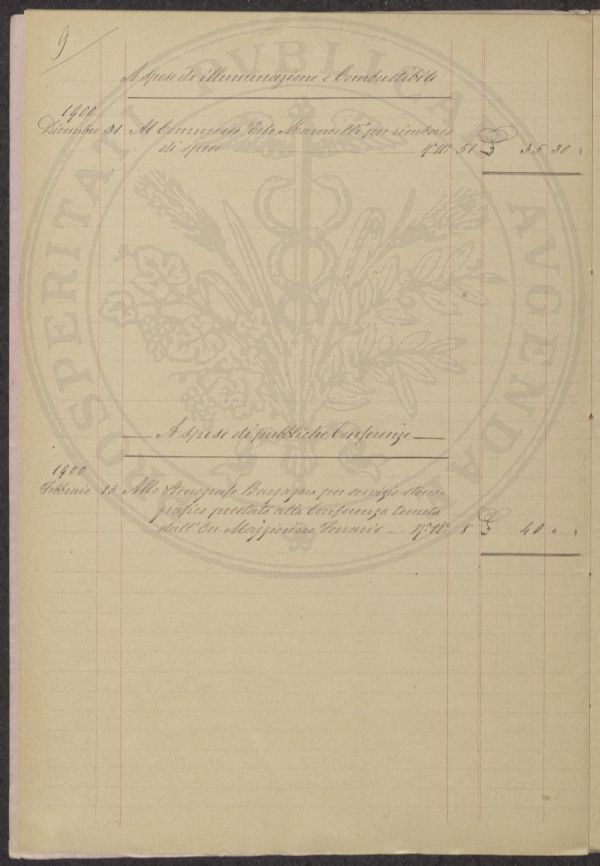 9
A spese di illuminazione e Combustibile
1900
Dicembre 31 Al Commesso Marinelli per rimborso
di spese 51 £ 35 30
A spese di pubbliche Conferenze
1900
Febbraio 15 Allo Stenografo per servizio steno-
grafico prestato alla Conferenza tenuta
dall'On Maggiorino Ferraris 8 £ 40 "
PROSPERITATI PVBLICAE AVGENDAE